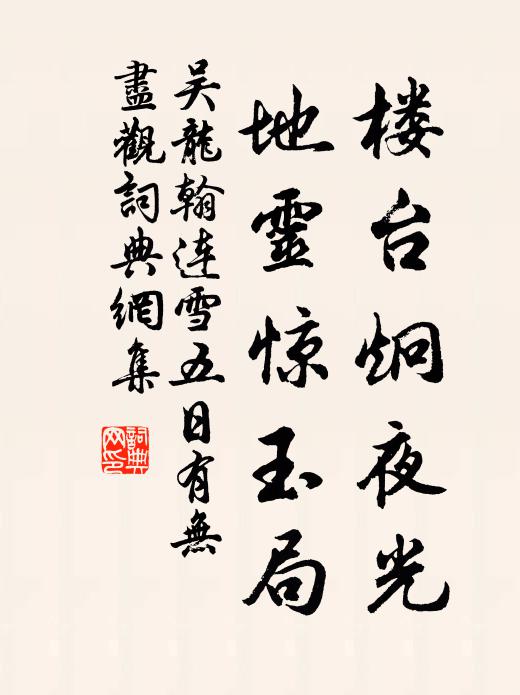 楼台炯夜光
地靈惊玉局
吴龍翰连雪五日有無
盡觀詞典網集
詞典網印